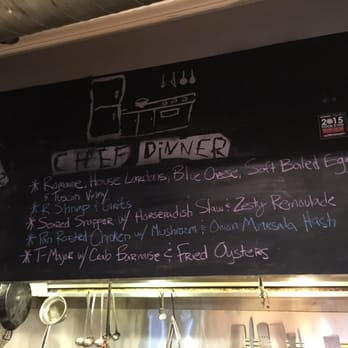 CHEF DINNER
* Romaine, House Lardons, Blue Cheese, Soft Boiled Egg
& Tuscan Vinny
* R Shrimp & Grits
* Seared Snapper w/ Horseradish Slaw & Zesty Remoulade
* Pan Roasted Chicken w/ Mushroom & Onion Marsala Hash
* T-Major w/ Crab Bernaise & Fried Oysters
2015